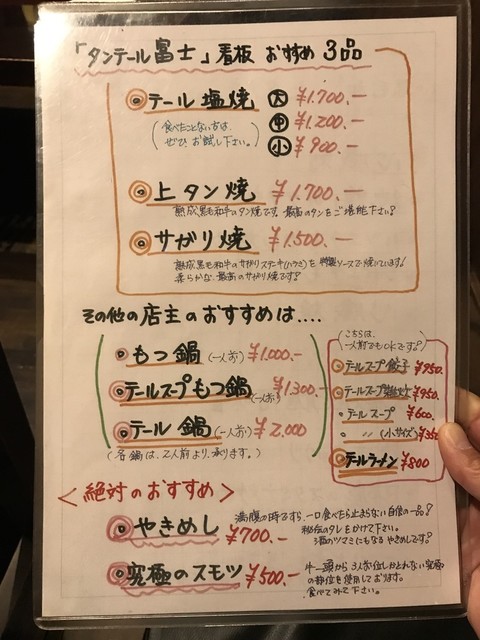 「タンテール富士」看板 おすすめ 3品
テール塩焼 大 ¥1,700.-
(食べたことない方は、
ぜひ、お試し下さい。)
中 ¥1,200.-
小 ¥900.-
上タン焼 ¥1,700.-
熟成黒毛和牛のタン焼です。最高のタンをご堪能下さい!
サガリ焼 ¥1,500.-
熟成黒毛和牛のサガリステーキ(ハラミ)を特製ソースで焼いています!
柔らかな、最高のサガリ焼です。
その他の店主のおすすめは....
もつ鍋(一人前) ¥1,000.-
テールスープもつ鍋(一人前) ¥1,300.-
テール鍋(一人前) ¥2,000
(各鍋は、2人前より、承ります。)
(こちらは、
一人前でもOKです!)
テールスープ餃子 ¥950.
テールスープ雑炊 ¥950.
・テールスープ ¥600.
・〃(小サイズ) ¥350
テールラーメン ¥800
<絶対のおすすめ>
やきめし ¥700.-
満腹の時ですら、一口食べたら止まらない自信の一品!
秘伝のタレをかけて下さい。
酒のツマミにもなるやきめしです!
究極のスモツ ¥500.-
牛一頭から3人前位しかとれない究極
の部位を使用しております。
食べてみて下さい。